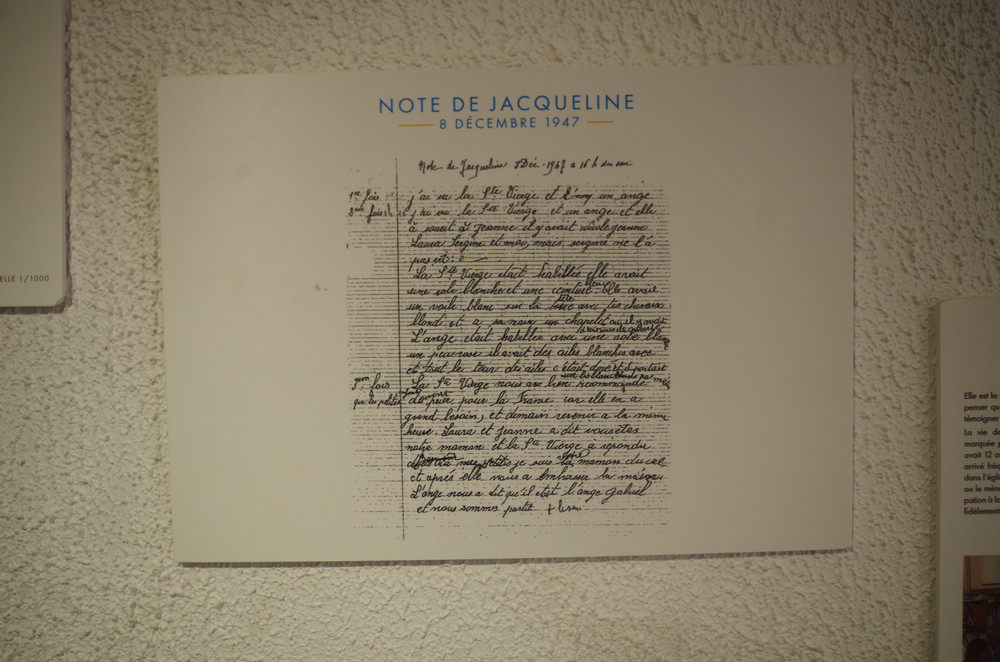 NOTE DE JACQUELINE
8 DÉCEMBRE 1947
Note de Jacqueline 8 Déc - 1947 a 16 h du soir
1ère fois j'ai vu la Ste Vierge et un ange
2em fois j'ai vu la Ste Vierge et un ange et elle
a sourit a Jeanne il y avait nicole jeanne
Laura Sergine et moi, mais sergine ne l'a
pas
La Ste Vierge etait habillée elle avait
une robe blanche et une ceinture bleu. Elle avait
un voile blanc sur la tête avec des cheveux
blond et a sa main un chapelet
L'ange etait habiller avec une robe blanc
un peu rose il avait des ailes blanches avec
et tout le tour des ailes c'était doré et il portait
3em fois La Ste Vierge nous a bien recommandé
que les petits de prier pour la France car elle en a
grand besoin, et demain revenir a la meme
heure. Laura et Jeanne a dit vous etes
notre maman et la Ste Vierge a repondu
mes petits je suis votre maman du ciel
et aprés elle nous a embrasser la main
L'ange nous a dit qu'il etait l'ange Gabriel
et nous somme partit
ELLE 1/1000
Elle est la
penser qu
témoigner
La vie de
marquée
avait 12 a
arrivé fréq
dans l'égl
ou le mén
pation à la
fidèlemen